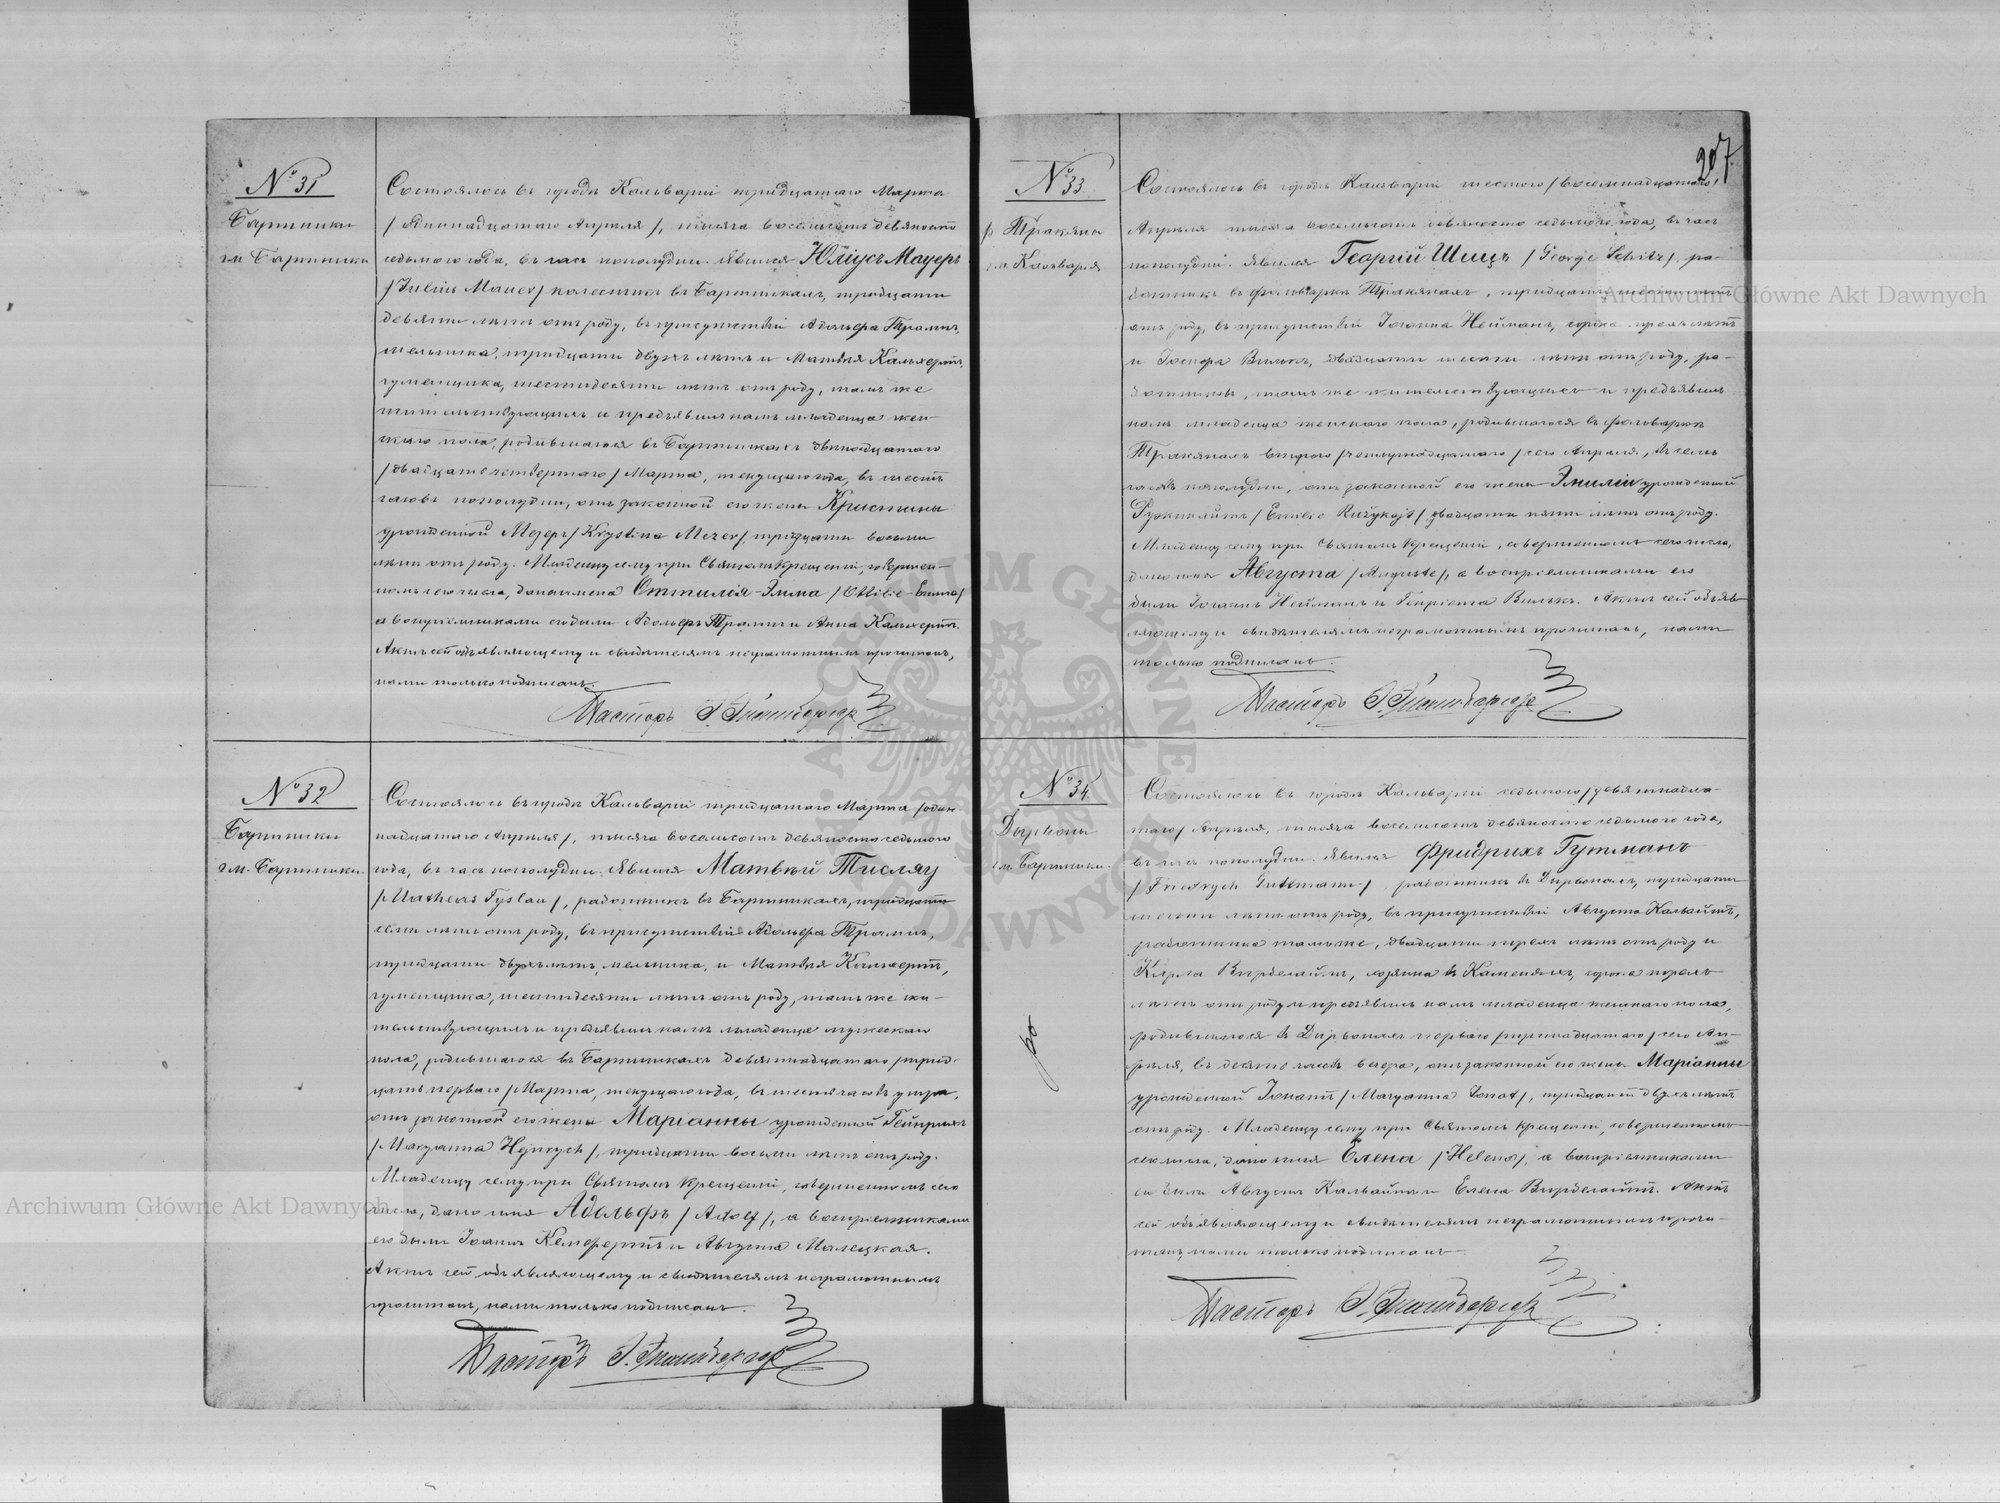 № 31
Бартники
гм. Бартники
Состоялось въ городѣ Кальваріи тридцатаго Марта
/одиннадцатаго Апрѣля/, тысяча восемьсотъ девяносто
седьмого года, въ часъ пополудни. Явился Юліусъ Мауеръ
/Julius Mauer/ колесникъ въ Бартникахъ, тридцати
девяти лѣтъ отъ роду, въ присутствіи Адольфа Трамп,
мельника, тридцати двухъ лѣтъ и Матвѣя Кальхертъ,
гуменщика, шестидесяти лѣтъ отъ роду, тамъ же
жительствующихъ и предъявилъ намъ младенца жен-
скаго пола, родившагося въ Бартникахъ двѣнадцатаго
/двадцать четвертаго/ Марта, текущаго года, въ шесть
часовъ пополудни, отъ законной его жены Кристины
урожденной Мезеръ /Krystina Mezer/, тридцати восьми
лѣтъ отъ роду. Младенцу сему при Святомъ Крещеніи, совершен-
номъ сего числа, дано имена Оттилія-Эмма /Ottilie-Emma/
а воспріемниками его были Адольфъ Трамп и Анна Кальхертъ.
Актъ сей объявляющему и свидѣтелямъ неграмотнымъ прочитанъ,
нами только подписанъ.
Пасторъ
№ 32
Бартники
гм. Бартники.
Состоялось въ городѣ Кальваріи тридцатаго Марта /один-
надцатаго Апрѣля/, тысяча восемьсотъ девяносто седьмого
года, въ часъ пополудни. Явился Матвѣй Тислау
/Matheas Tyslau/, работникъ въ Бартникахъ, тридцати
семи лѣтъ отъ роду, въ присутствіи Адольфа Трамп,
тридцати двухъ лѣтъ, мельника, и Матвѣя Кальхертъ,
гуменщика, шестидесяти лѣтъ отъ роду, тамъ же жи-
тельствующихъ и предъявилъ намъ младенца мужескаго
пола, родившагося въ Бартникахъ девятнадцатаго /трид-
цать перваго/ Марта, текущаго года, въ шесть часовъ утра,
отъ законной его жены Маріанны урожденной Гейнрихъ
/Maryanna Hejnrych/, тридцати восьми лѣтъ отъ роду.
Младенцу сему при Святомъ Крещеніи, совершенномъ сего
числа, дано имя Адольфъ /Adolf/, а воспріемниками
его были Іоаннъ Кемфертъ и Августа Малецкая.
Актъ сей объявляющему и свидѣтелямъ неграмотнымъ
прочитанъ, нами только подписанъ.
Пасторъ
207.
№ 33
Тракяны
гм. Кальварія
Состоялось въ городѣ Кальваріи шестого /восемнадцатаго/
Апрѣля тысяча восемьсотъ девяносто седьмого года, въ часъ
пополудни. Явился Георгій Шицъ /George Schitz/, ра-
ботникъ въ фольваркѣ Тракянахъ, тридцати
отъ роду, въ присутствіи Іоанна Нейманъ, сорока трехъ лѣтъ
и Іосифа Вилькъ, двадцати шести лѣтъ отъ роду, ра-
ботниковъ, тамъ же жительствующихъ и предъявилъ
намъ младенца женскаго пола, родившагося въ фольваркѣ
Тракянахъ второго /четырнадцатаго/ сего Апрѣля, въ семь
часовъ пополудни, отъ законной его жены Эмиліи урожденной
/Emilie двадцати пяти лѣтъ отъ роду.
Младенцу сему при Святомъ Крещеніи, совершенномъ сего числа,
дано имя Августа /Auguste/, а воспріемниками его
были Іоаннъ Нейманъ и Генріета Вилькъ. Актъ сей объяв-
ляющему и свидѣтелямъ неграмотнымъ прочитанъ, нами
только подписанъ.
Пасторъ
№ 34
Дирвоны
гм. Бартники.
Состоялось въ городѣ Кальваріи седьмого /девятнадца-
таго/ Апрѣля, тысяча восемьсотъ девяносто седьмого года,
въ часъ пополудни. Явился Фридрихъ Гутманъ
/Friedrych Gutkmann/, работникъ въ Дирвонахъ, тридцати
шести лѣтъ отъ роду, въ присутствіи Августа Кальвайтъ,
работника тамъ же, двадцати трехъ лѣтъ отъ роду и
Карла Вирбелайтъ, хозяина въ сорока трехъ
лѣтъ отъ роду и предъявилъ намъ младенца женскаго пола,
родившагося въ Дирвонахъ перваго /тринадцатаго/ сего Ап-
рѣля, въ десять часовъ вечера, отъ законной его жены Маріанны
урожденной Іонатъ /Maryanna Jonat/, тридцати двухъ лѣтъ
отъ роду. Младенцу сему при Святомъ Крещеніи, совершенномъ
сего числа, дано имя Елена /Helena/, а воспріемниками
ея были Августъ Кальвайтъ и Елена Вирбелайтъ. Актъ
сей объявляющему и свидѣтелямъ неграмотнымъ прочи-
танъ, нами только подписанъ.
Пасторъ
Archiwum Główne Akt Dawnych
Archiwum Główne Akt Dawnych
ARCHIWUM GŁÓWNE AKT DAWNYCH